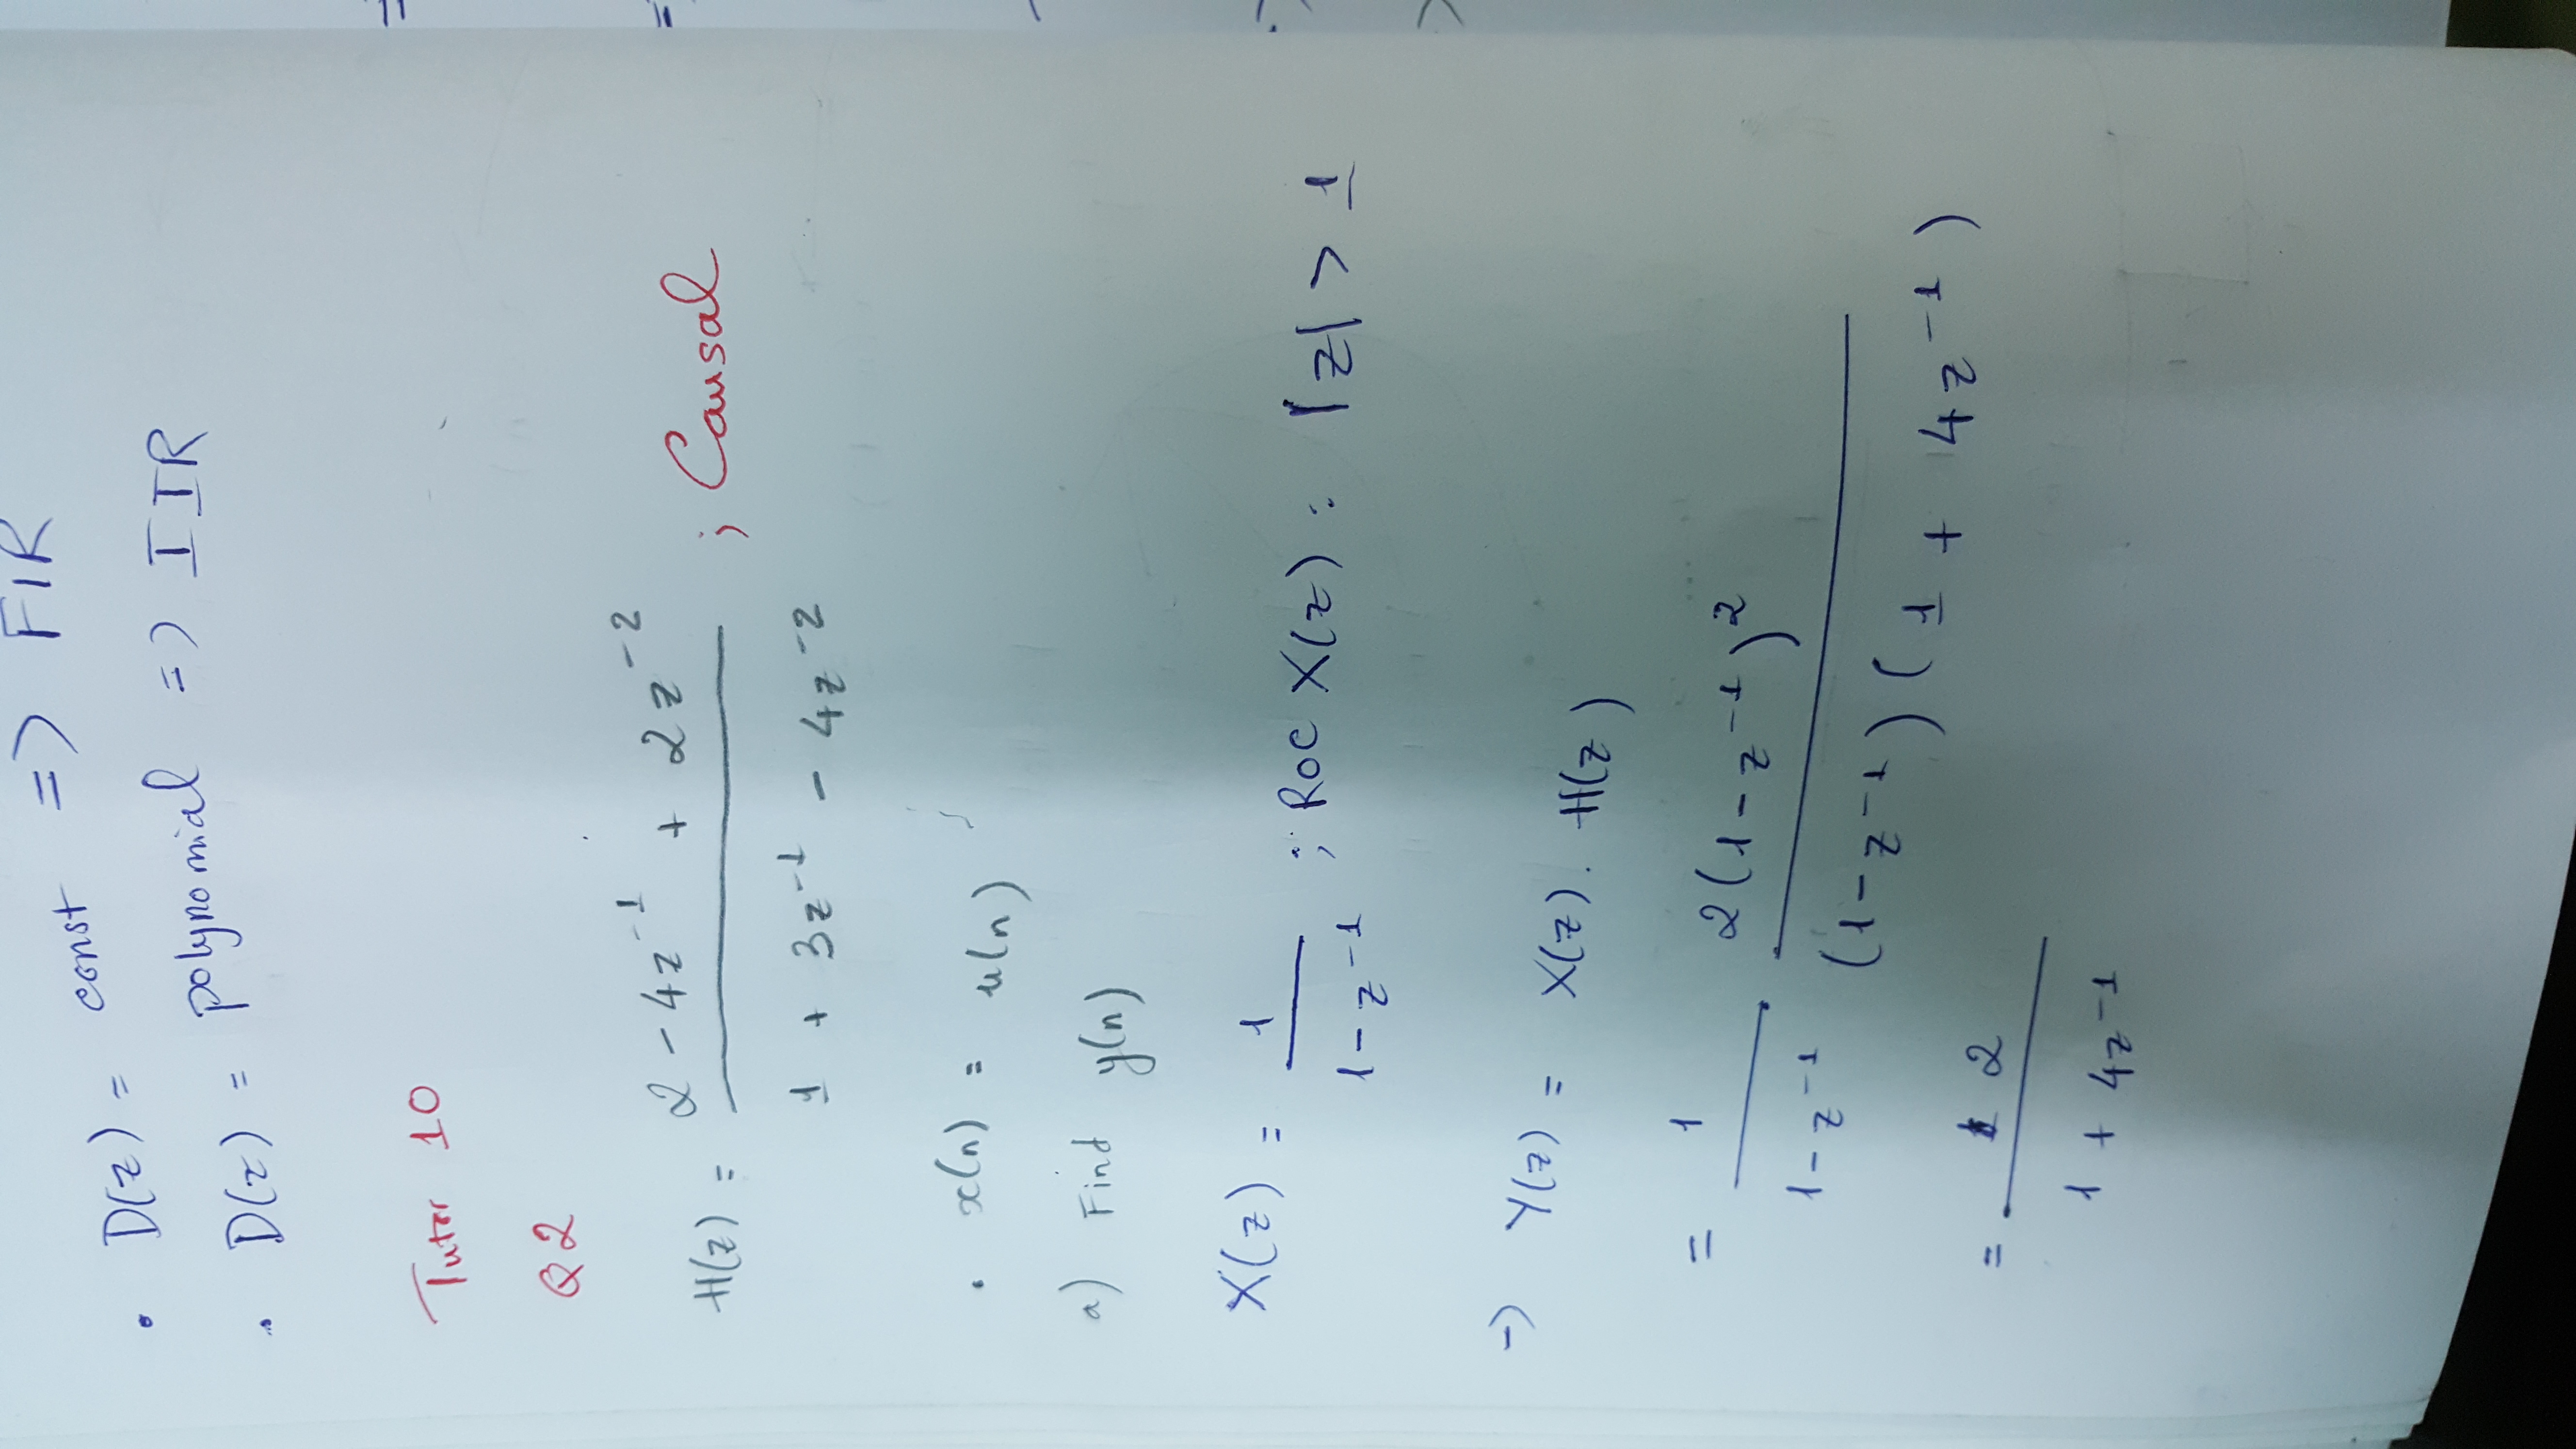 • D(z) = const => FIR
• D(z) = polynomial => IIR
Tuter 10
Q2
H(z) = 2 - 4z⁻¹ + 2z⁻² / 1 + 3z⁻¹ - 4z⁻² ; Causal
• x(n) = u(n)
a) Find y(n)
X(z) = 1 / 1 - z⁻¹ ; ROC X(z) : |z| > 1
=> Y(z) = X(z) . H(z)
= 1 / 1 - z⁻¹ . 2(1 - z⁻¹)² / (1 - z⁻¹)(1 + 4z⁻¹)
= 2 / 1 + 4z⁻¹